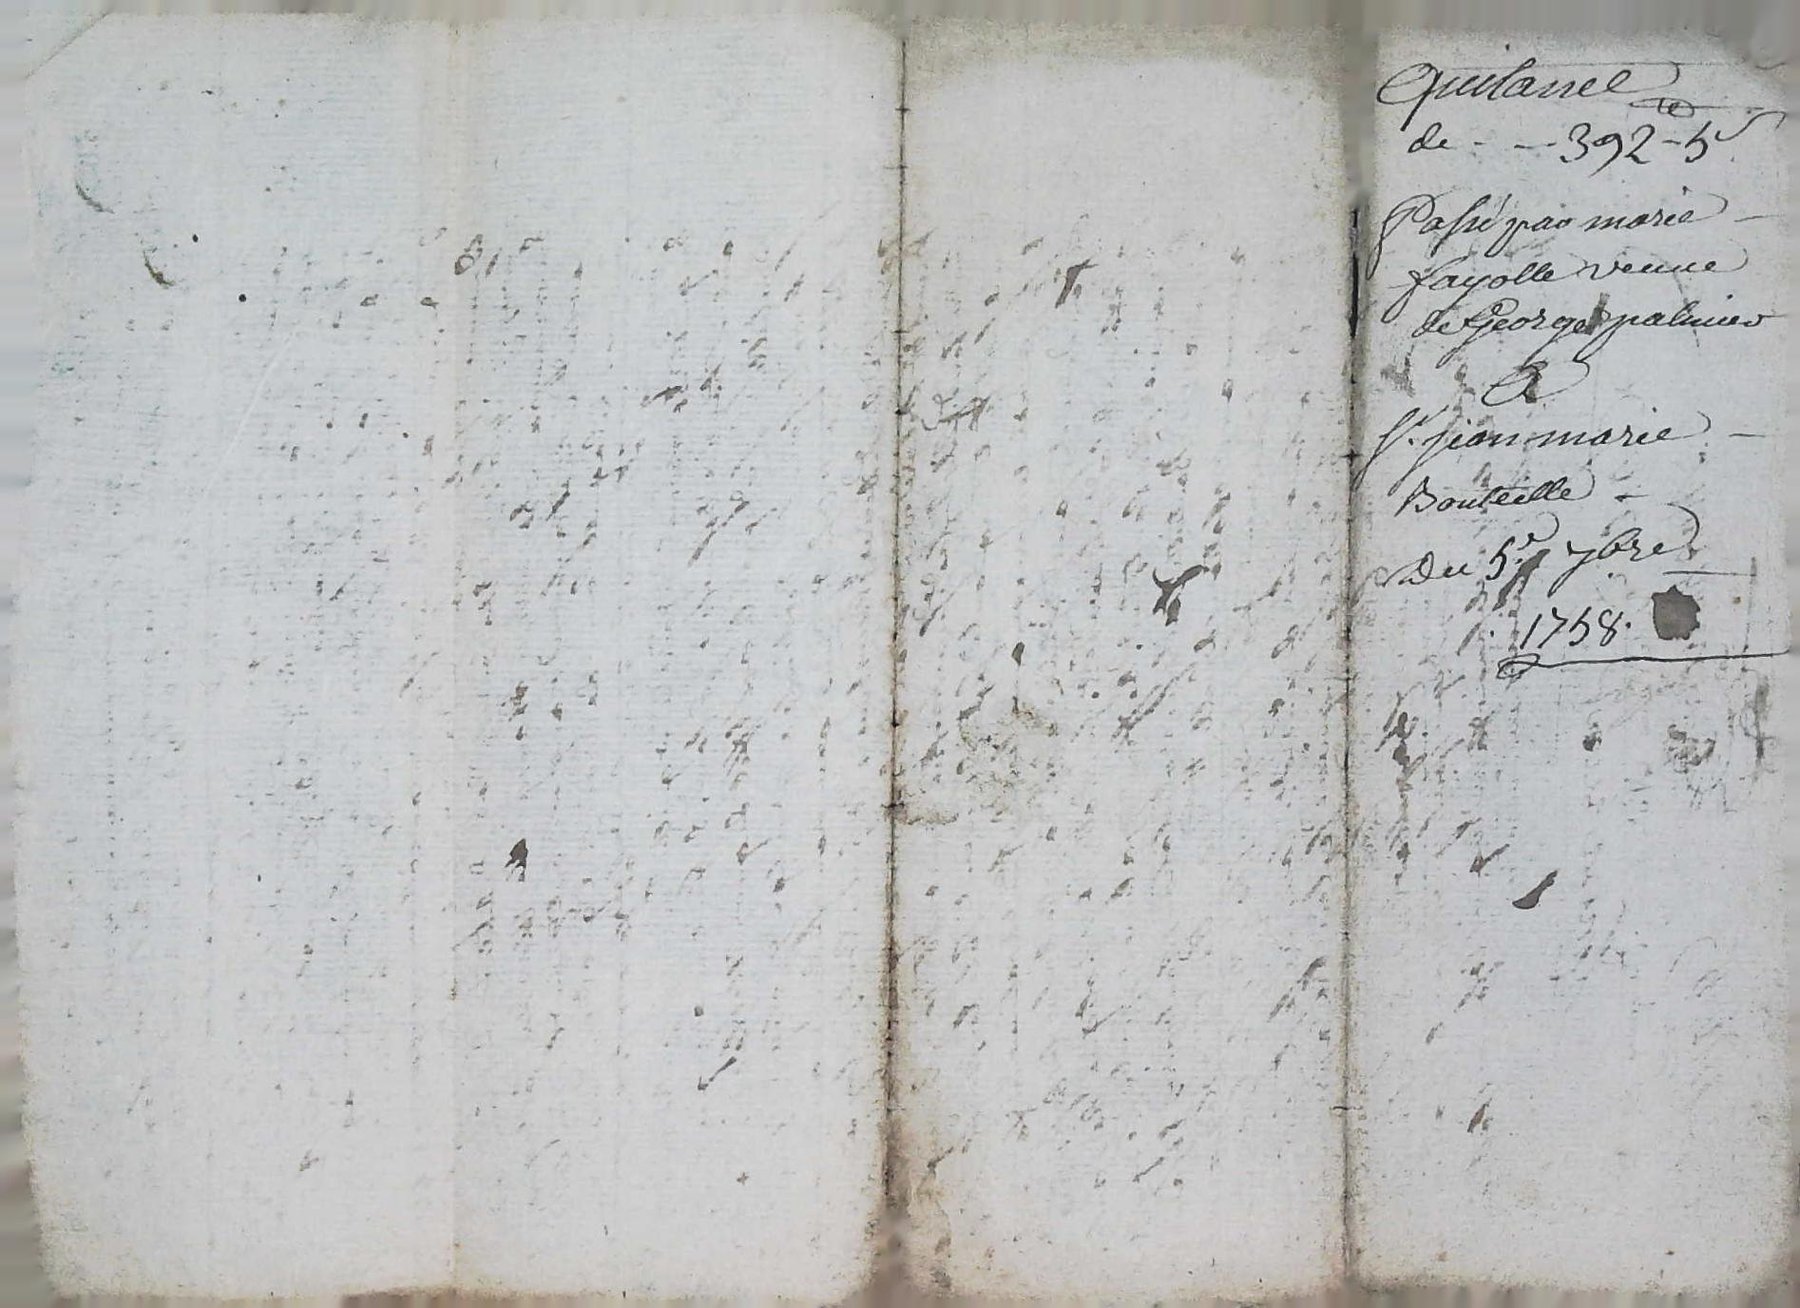 Quitance
de - - 392 tt - 5 s
Passé par marie -
fayolle veuve
de George palmier
A
Sr. jean marie -
Bouteille -
Du 5e. 7bre
1758.